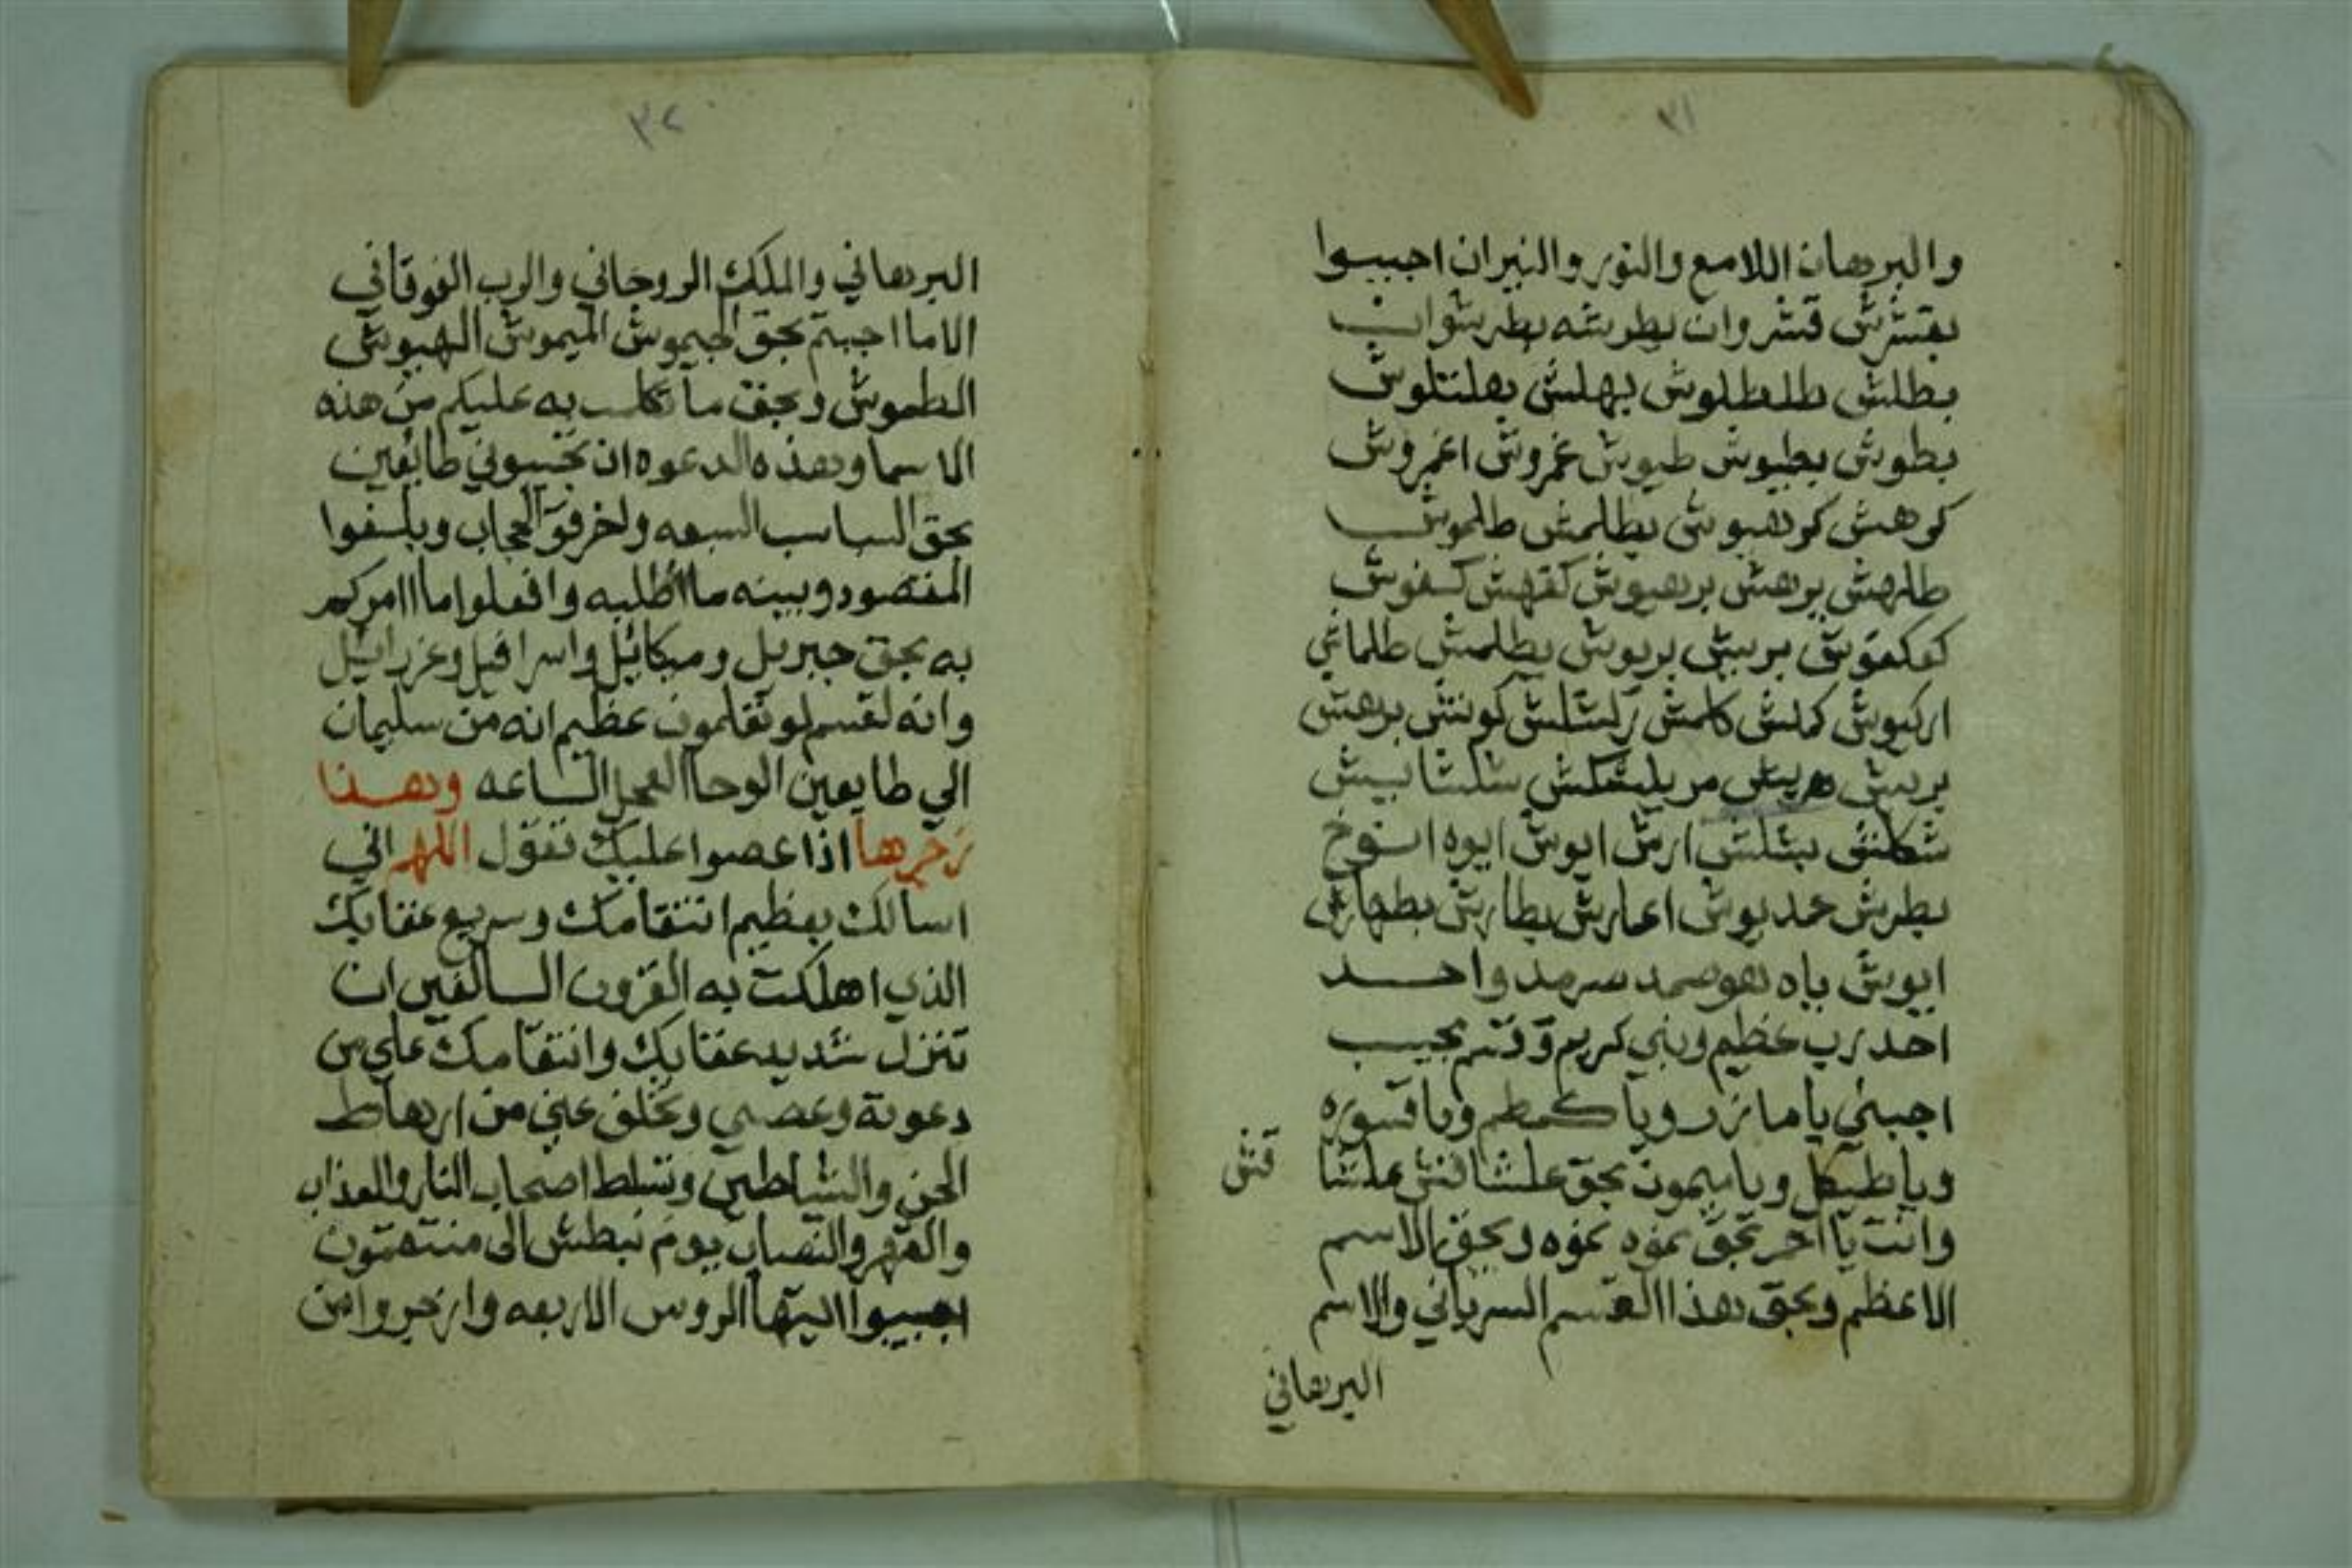 ٣١
والبرهان اللامع والنور والنيران اجيبوا
بقشرش قشروان بطرشه بطرشوان
بطلش طلطلوش بهلش بهلتلوش
بطوش بطيوش طيوش غمروش اغمروش
كرهش كرهيوش بطلمش طلموش
طلهش برهش بردهيوش كفهش كسفوش
كعكعوش بربش بريوش بطلمش طلماش
اركيوش كلمش زلشلش كونش برهش
بريش مريلشكش شلشا بيش
بشلش ارش ايوش ايوه انوخ
بطرش حمديوش اعارش بطارش بطهارش
ايوش ياه هو صمد سرمد واحد
احد رب عظيم ونبي كريم وقسم مجيب
اجبني يا مازر ويا كمطم ويا قسوره
ويا طيكل ويا ميمون بحق علشا قنش علشا
قنش
وانت يا احمر بحق نموه نموه وبحق الاسم
الاعظم وبحق هذا القسم السرياني والاسم
البرهاني
٣٢
البرهاني والملك الروحاني والرب الفوقاني
الاما اجبتم بحق الجيموش الميموش الهيوش
الطموش وبحق ما به عليكم من هذه
الاسما وبهذه الدعوه ان تجيبوني طايعين
بحق السباسب السبعه واخرقو الحجاب وبلغوا
المقصود وبينه ما اطلبه وافعلوا ما امركم
به بحق جبريل وميكائيل واسرافيل وعزرائيل
وانه لقسم لو تعلمون عظيم انه من سليمان
الي طايعين الوحا العجل الساعه وهذا
زجرها اذا عصوا عليك تقول اللهم اني
اسالك بعظيم انتقامك وسريع عقابك
الذي اهلكت به القرون السالفين ان
تنزل شديد عقابك وانتقامك علي من
دعوته وعصي وتخلف عني من ارهاط
الجن والشياطين وتسلط اصحاب النار والعذاب
والقهر والنصاب يوم نبطش الى منتقمون
اجيبوا ايتها الروس الاربعه وازجروا من